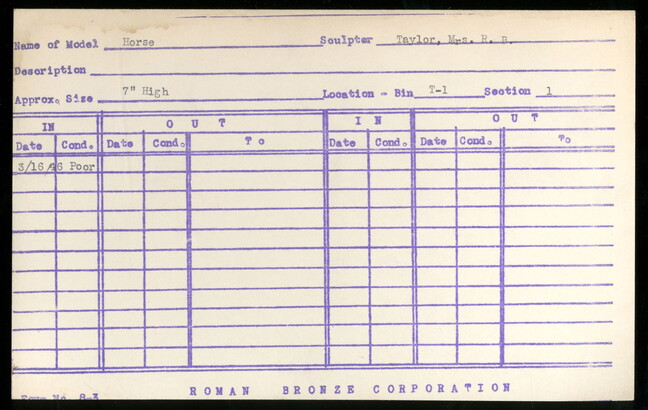 Name of Model Horse Sculptor Taylor, Mrs. R. B.
Description
Approx. Size 7" High Location - Bin T-1 Section 1
IN OUT IN OUT
Date Cond. Date Cond. To Date Cond. Date Cond. To
3/16/46 Poor
ROMAN BRONZE CORPORATION
Form No. 8-3